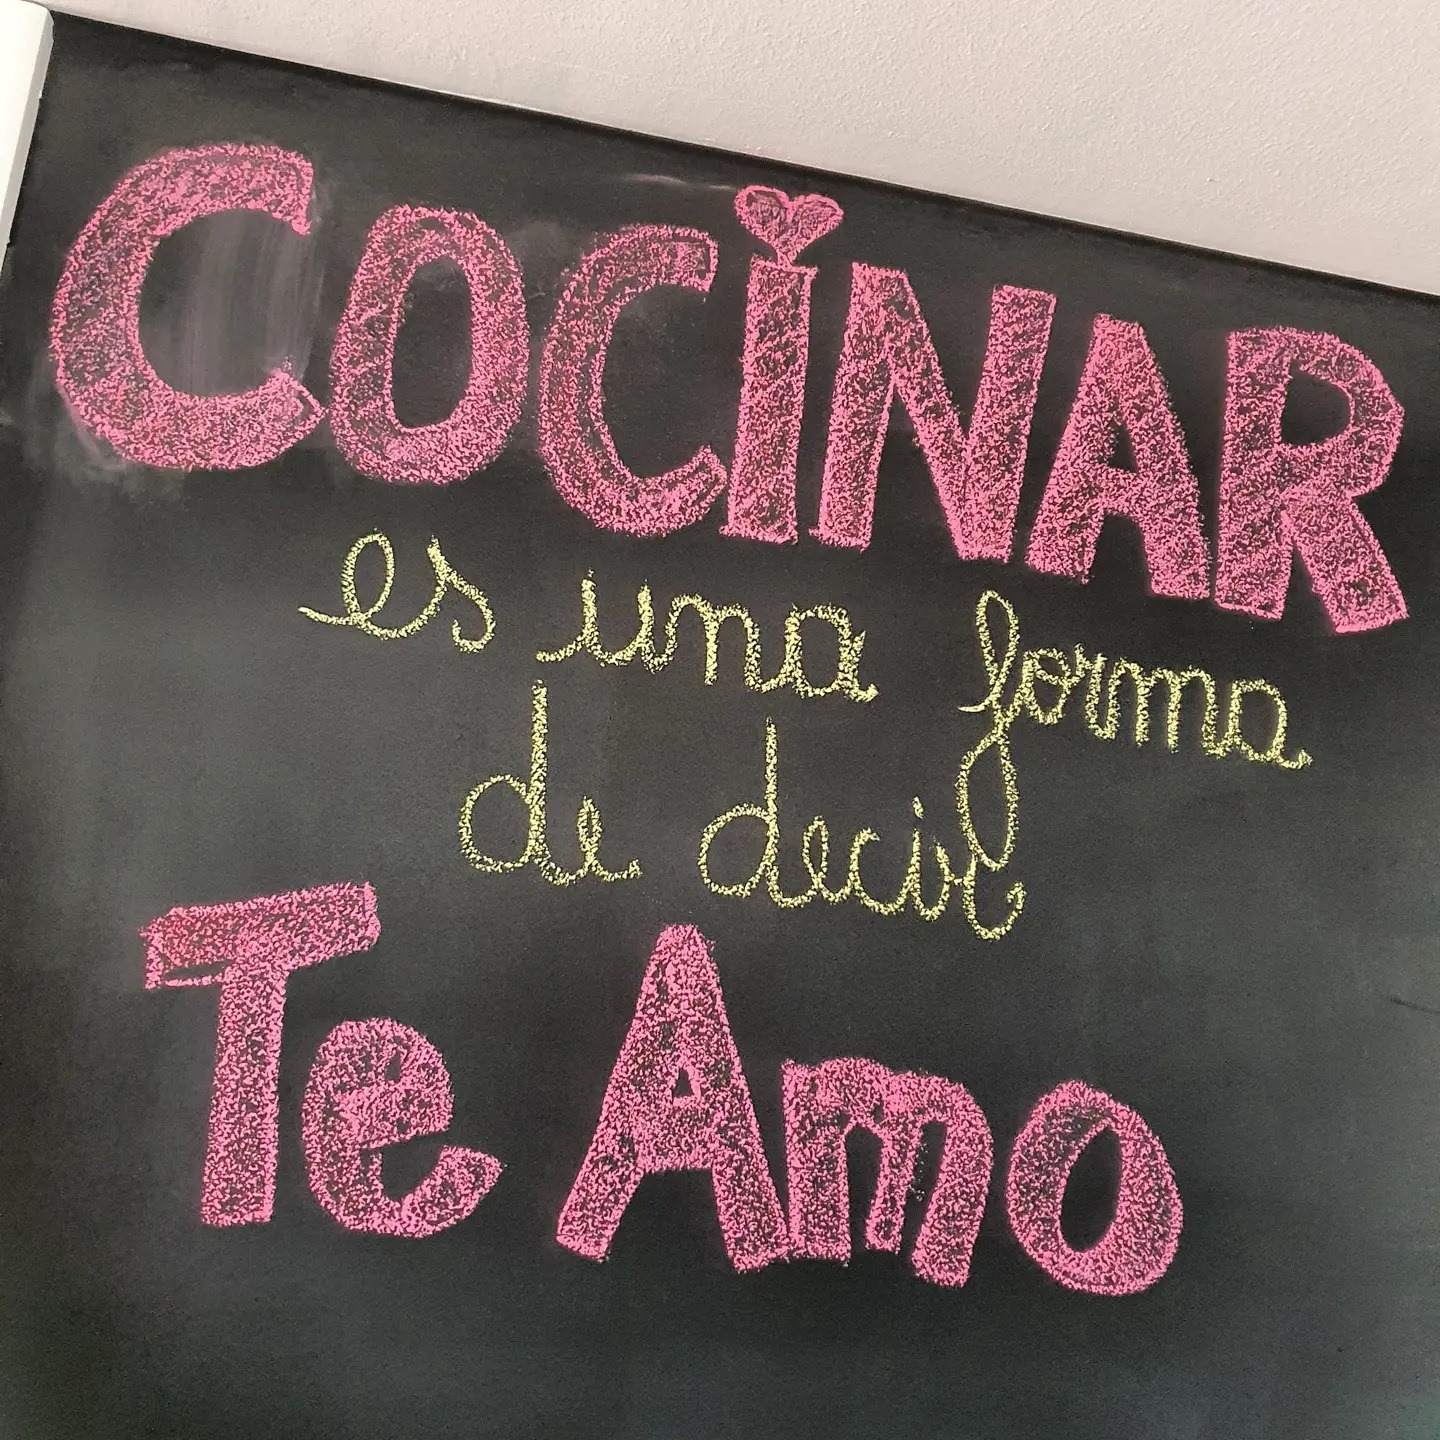 COCiNAR
es una forma
de decir
Te Amo